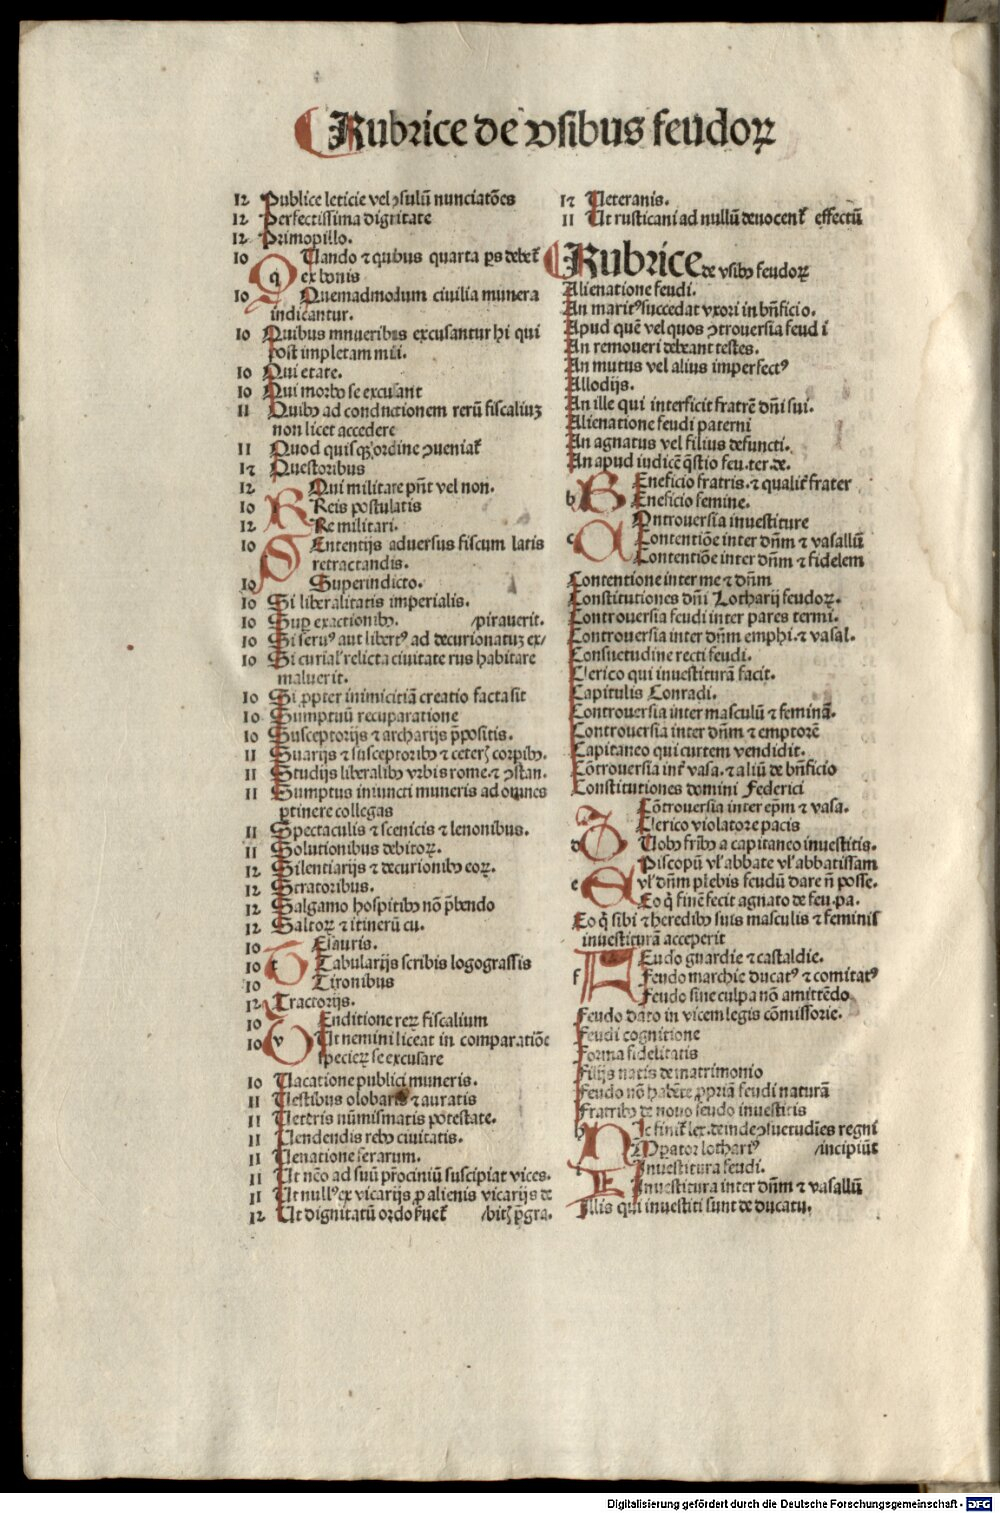 Rubrice de vsibus feudoꝝ
12 Publice leticie vel ꝯsulū nunciatōes
12 Perfectissima digritate
12 Primopillo.
10 Uando ⁊ qubus quarta ps debet̄
q ex bonis
10 Quemadmodum ciuilia munera
indicantur.
10 Quibus mnueribus excusantur hi qui
post impletam mili.
10 Qui etate.
10 Qui morbo se excusant
11 Quibꝰ ad conductionem rerū fiscaliuꝫ
non licet accedere
11 Quod quisqꝫ ordine ꝯueniat̄
12 Questoribus
12 Qui militare pn̄t vel non.
10 Reis postulatis
12 Re militari.
10 Ententijs aduersus fiscum latis
retractandis.
10 Superindicto.
10 Si liberalitatis imperialis.
10 Sup exactionibꝰ. /pirauerit.
10 Si seruꝰ aut libertꝰ ad decurionatuꝫ ex/
10 Si curialꝭ relicta ciuitate rus habitare
maluerit.
10 Si ꝓpter inimicitiā creatio facta sit
10 Sumptuū recuparatione
10 Susceptorijs ⁊ archarijs p̄positis.
11 Suarijs ⁊ susceptoribꝰ ⁊ ceterꝭ corpibꝰ.
11 Studijs liberalibꝰ vrbis rome ⁊ ꝯstan.
11 Sumptus iniuncti muneris ad omnes
ptinere collegas
11 Spectaculis ⁊ scenicis ⁊ lenonibus.
11 Solutionibus debitoꝝ.
12 Silentiarijs ⁊ decurionibꝰ eoꝝ.
12 Stratoribus.
12 Salgamo hospitibꝰ nō p̄bendo
12 Saltoꝝ ⁊ itinerū cu.
10 Elauris.
10 t Tabularijs scribis logograffis
10 Tironibus
12 Tractorijs.
10 Enditione reꝝ fiscalium
10 v Ut nemini liceat in comparatiōe
specieꝝ se excusare
10 Uacatione publici muneris.
11 Uestibus olobaris ⁊ auratis
11 Ueteris nūmismatis potestate.
11 Uendendis rebꝰ ciuitatis.
11 Uenatione ferarum.
11 Ut nēo ad suū pr̄ociniū suscipiat vices.
11 Ut nullꝰ ex vicarijs ꝓ alienis vicarijs de
12 Ut dignitatū ordo ẜuet̄ /bitꝭ p̄gra.
12 Ueteranis.
11 Ut rusticani ad nullū deuocent̄ effectū
Rubrice de vsibꝰ feudoꝝ
Alienatione feudi.
An maritꝰ succedat vxori in bn̄ficio.
Apud quē vel quos ꝯtrouersia feud i
An remoueri debeant testes.
An mutus vel alius imperfectꝰ
Allodijs.
An ille qui interficit fratrē dn̄i sui.
Alienatione feudi paterni
An agnatus vel filius defuncti.
An apud iudicē q̄stio feu. ter. de.
Eneficio fratris. ⁊ qualit̄ frater
b Eneficio femine.
Ontrouersia inuestiture
c Contentiōe inter dn̄m ⁊ vasallū
Contentiōe inter dn̄m ⁊ fidelem
Contentione inter me ⁊ dn̄m
Constitutiones dn̄i Lotharij feudoꝝ.
Controuersia feudi inter pares termi.
Controuersia inter dn̄m emphi. ⁊ vasal.
Consuetudine recti feudi.
Clerico qui inuestiturā facit.
Capitulis Conradi.
Controuersia inter masculū ⁊ feminā.
Controuersia inter dn̄m ⁊ emptorē
Capitaneo qui curtem vendidit.
Cōtrouersia int̄ vasa. ⁊ aliū de bn̄ficio
Constitutiones domini Federici
Cōtrouersia inter epm̄ ⁊ vasa.
Clerico violatore pacis
d Uobꝰ fribꝰ a capitaneo inuestitis.
Piscopū vl' abbate vl' abbatissam
e vl' dn̄m plebis feudū dare n̄ posse.
Eo q̄ finē fecit agnato de feu. pa.
Eo q̄ sibi ⁊ heredibꝰ suis masculis ⁊ feminis
inuestiturā acceperit
Eudo guardie ⁊ castaldie.
f Feudo marchie ducatꝰ ⁊ comitatꝰ
Feudo sine culpa nō amittēdo
Feudo dato in vicem legis cōmissorie.
Feudi cognitione
Forma fidelitatis
Filijs natis de matrimonio
Feudo nō habēte ꝓpriā feudi naturā
Fratribꝰ de nouo feudo inuestitis
h Ic finit̄ lex. deinde ꝯsuetudīes regni
Mpator lothariꝰ /incipiūt
i Inuestitura feudi.
Inuestitura inter dn̄m ⁊ vasallū
Illis qui inuestiti sunt de ducatu.
Digitalisierung gefördert durch die Deutsche Forschungsgemeinschaft - DFG